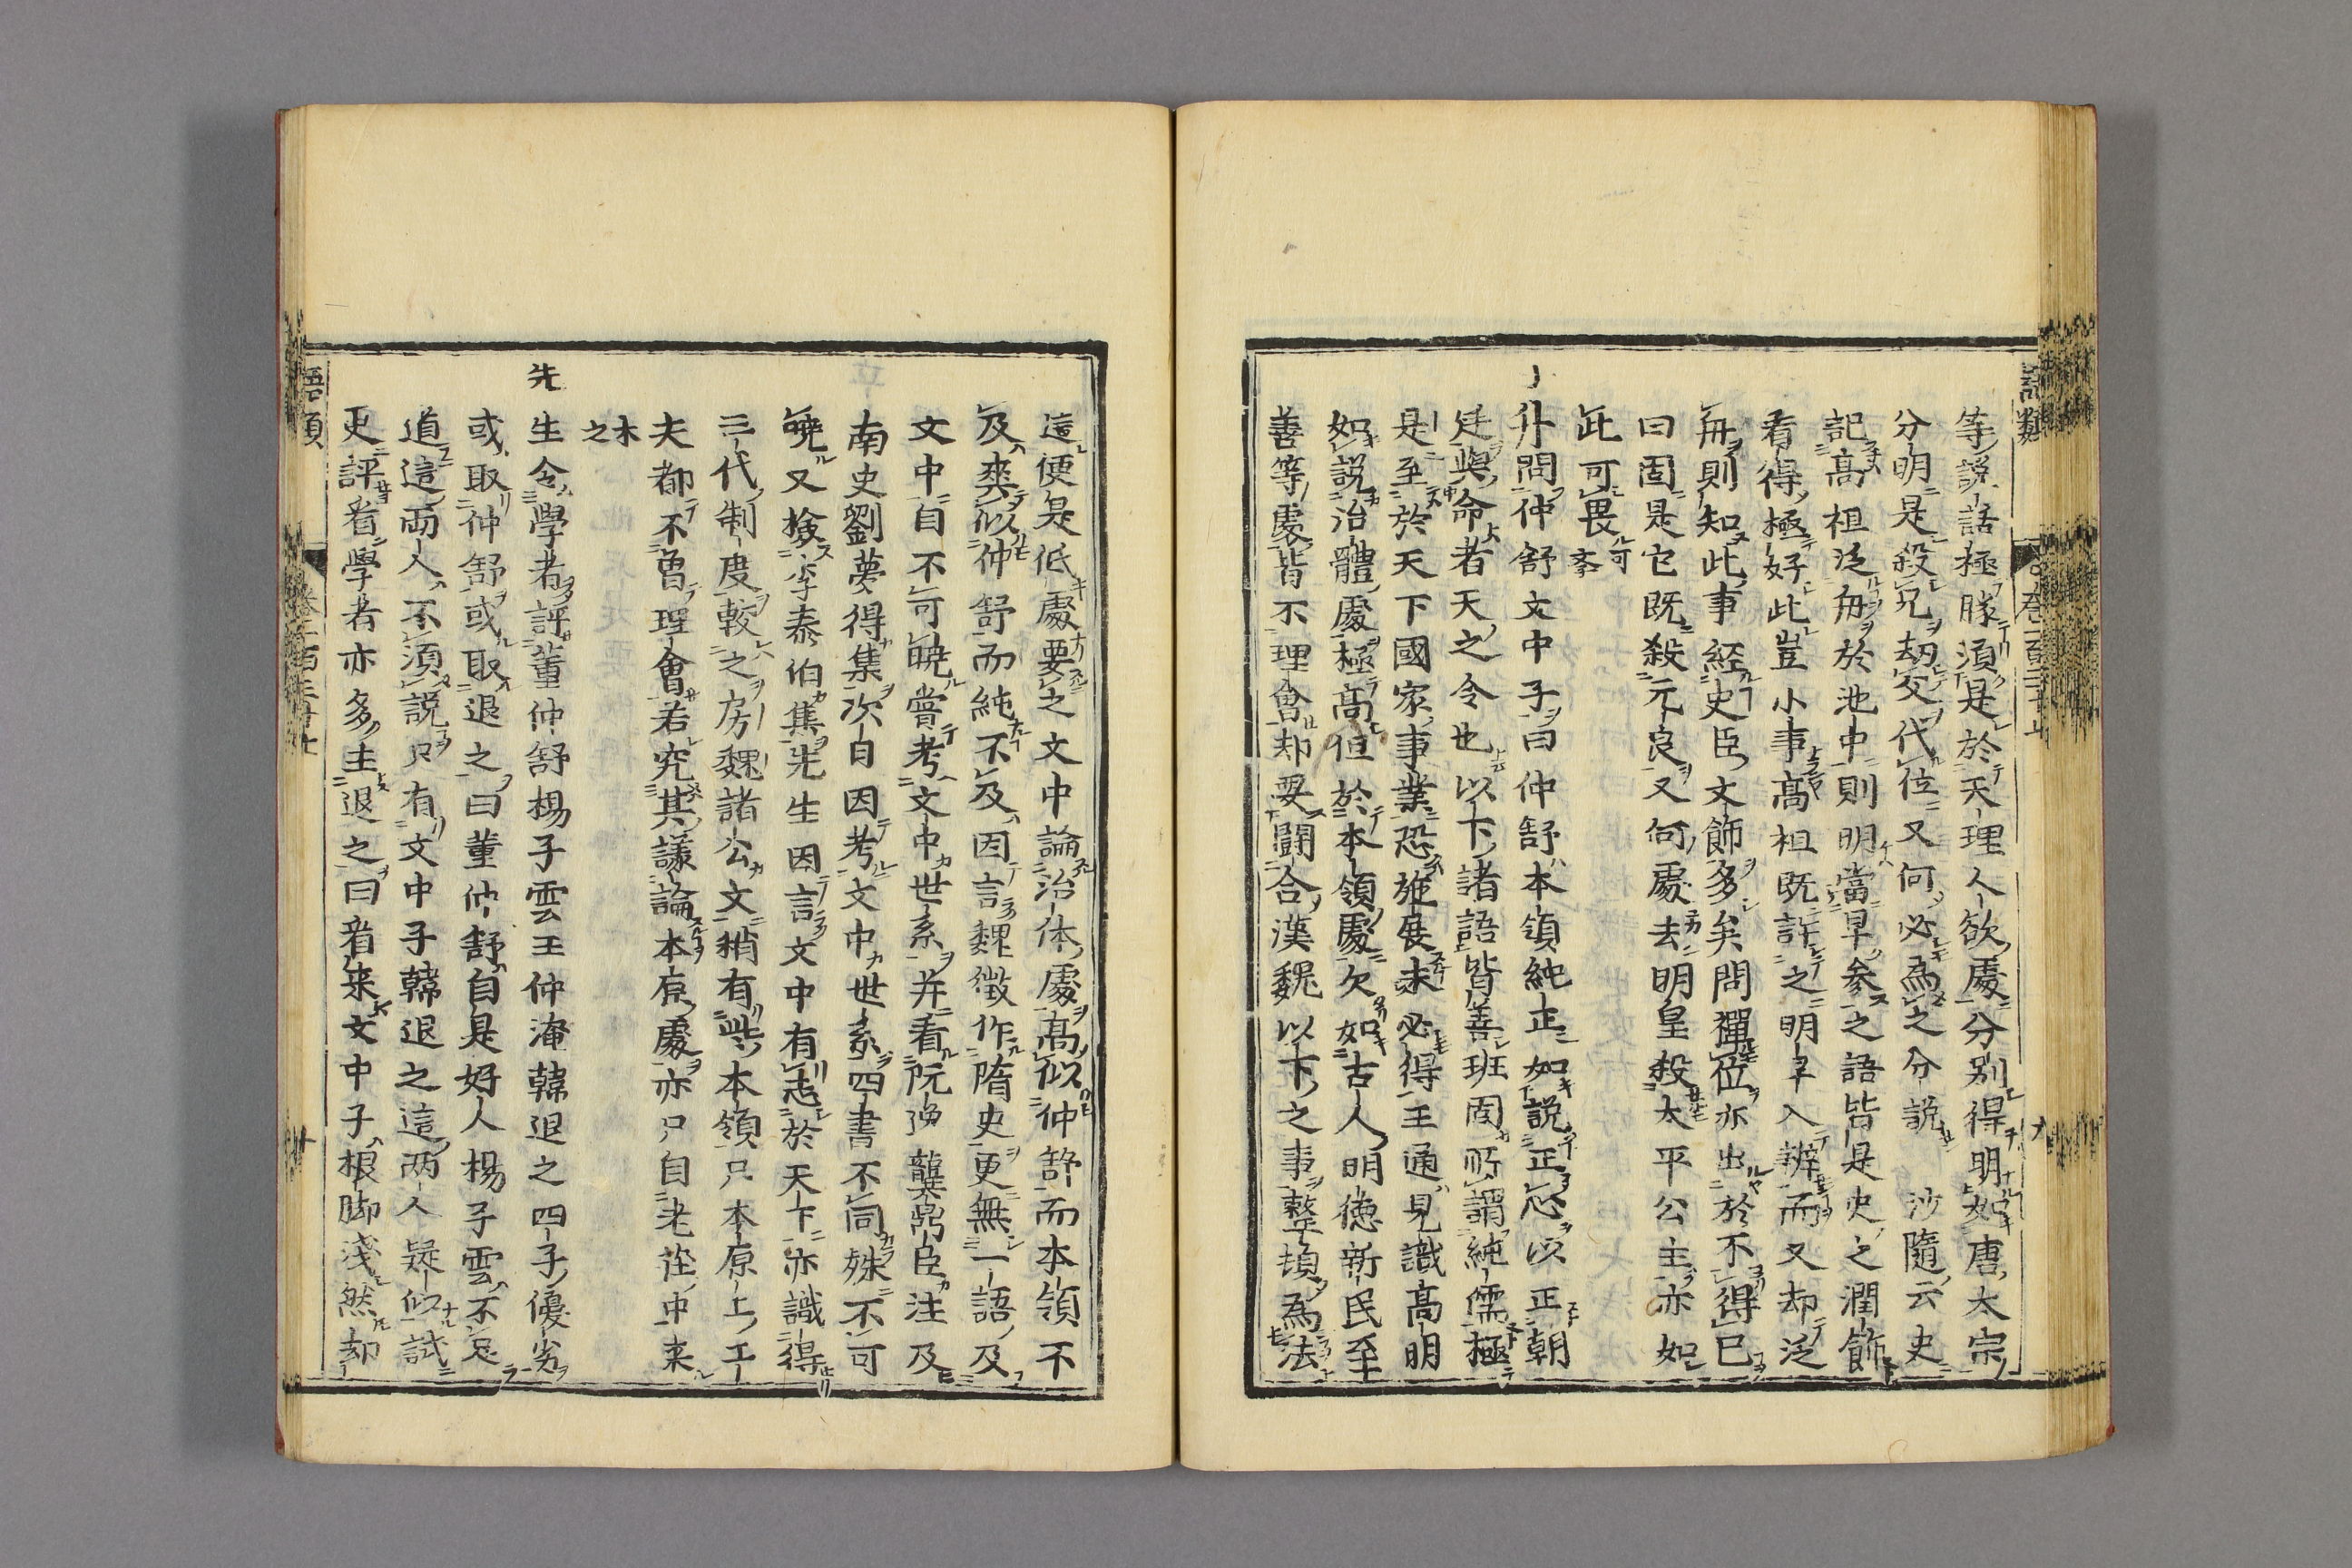 等説話極朦須是於天理人欲處分別得明如唐太宗
分明是殺兄劫父代位又何必為之分説　沙隨云史
記高祖泛舟於池中則明當早參之語皆是史之潤飾
看得極好此豈小事高祖既許之明早入辨而又却泛
舟則知此事經史臣文飾多矣問禪位亦出於不得已
曰固是它既殺元良又何處去明皇殺太平公主亦如
此可畏可学
仆問仲舒文中子曰仲舒本領純正如説正心以正朝
廷與命者天之令也以下諸語皆善班固所謂純儒極
是至於天下國家事業恐施展未必得王通見識高明
如説治體處極高但於本領處欠如古人明德新民至
善等處皆不理會却要鬪合漢魏以下之事整頓為法
這便是低處要之文中論治体處高似仲舒而本領不
及爽似仲舒而純不及因言魏徵作隋史更無一語及
文中自不可曉嘗考文中世系并看阮逸龔鼎臣注及
南史劉夢得集次日因考文中世系四書不同殊不可
曉又撿李泰伯集先生因言文中有志於天下亦識得
三代制度較之房魏諸公文稍有些本領只本原上工
夫都不曽理會若究其議論本原處亦只自老莊中来
木之
先生令學者評董仲舒楊子雲王仲淹韓退之四子優劣
或取仲舒或取退之曰董仲舒自是好人楊子雲不足
道這兩人不須説只有文中子韓退之這两人疑似試
更評看學者亦多主退之曰看来文中子根脚淺然却
語類